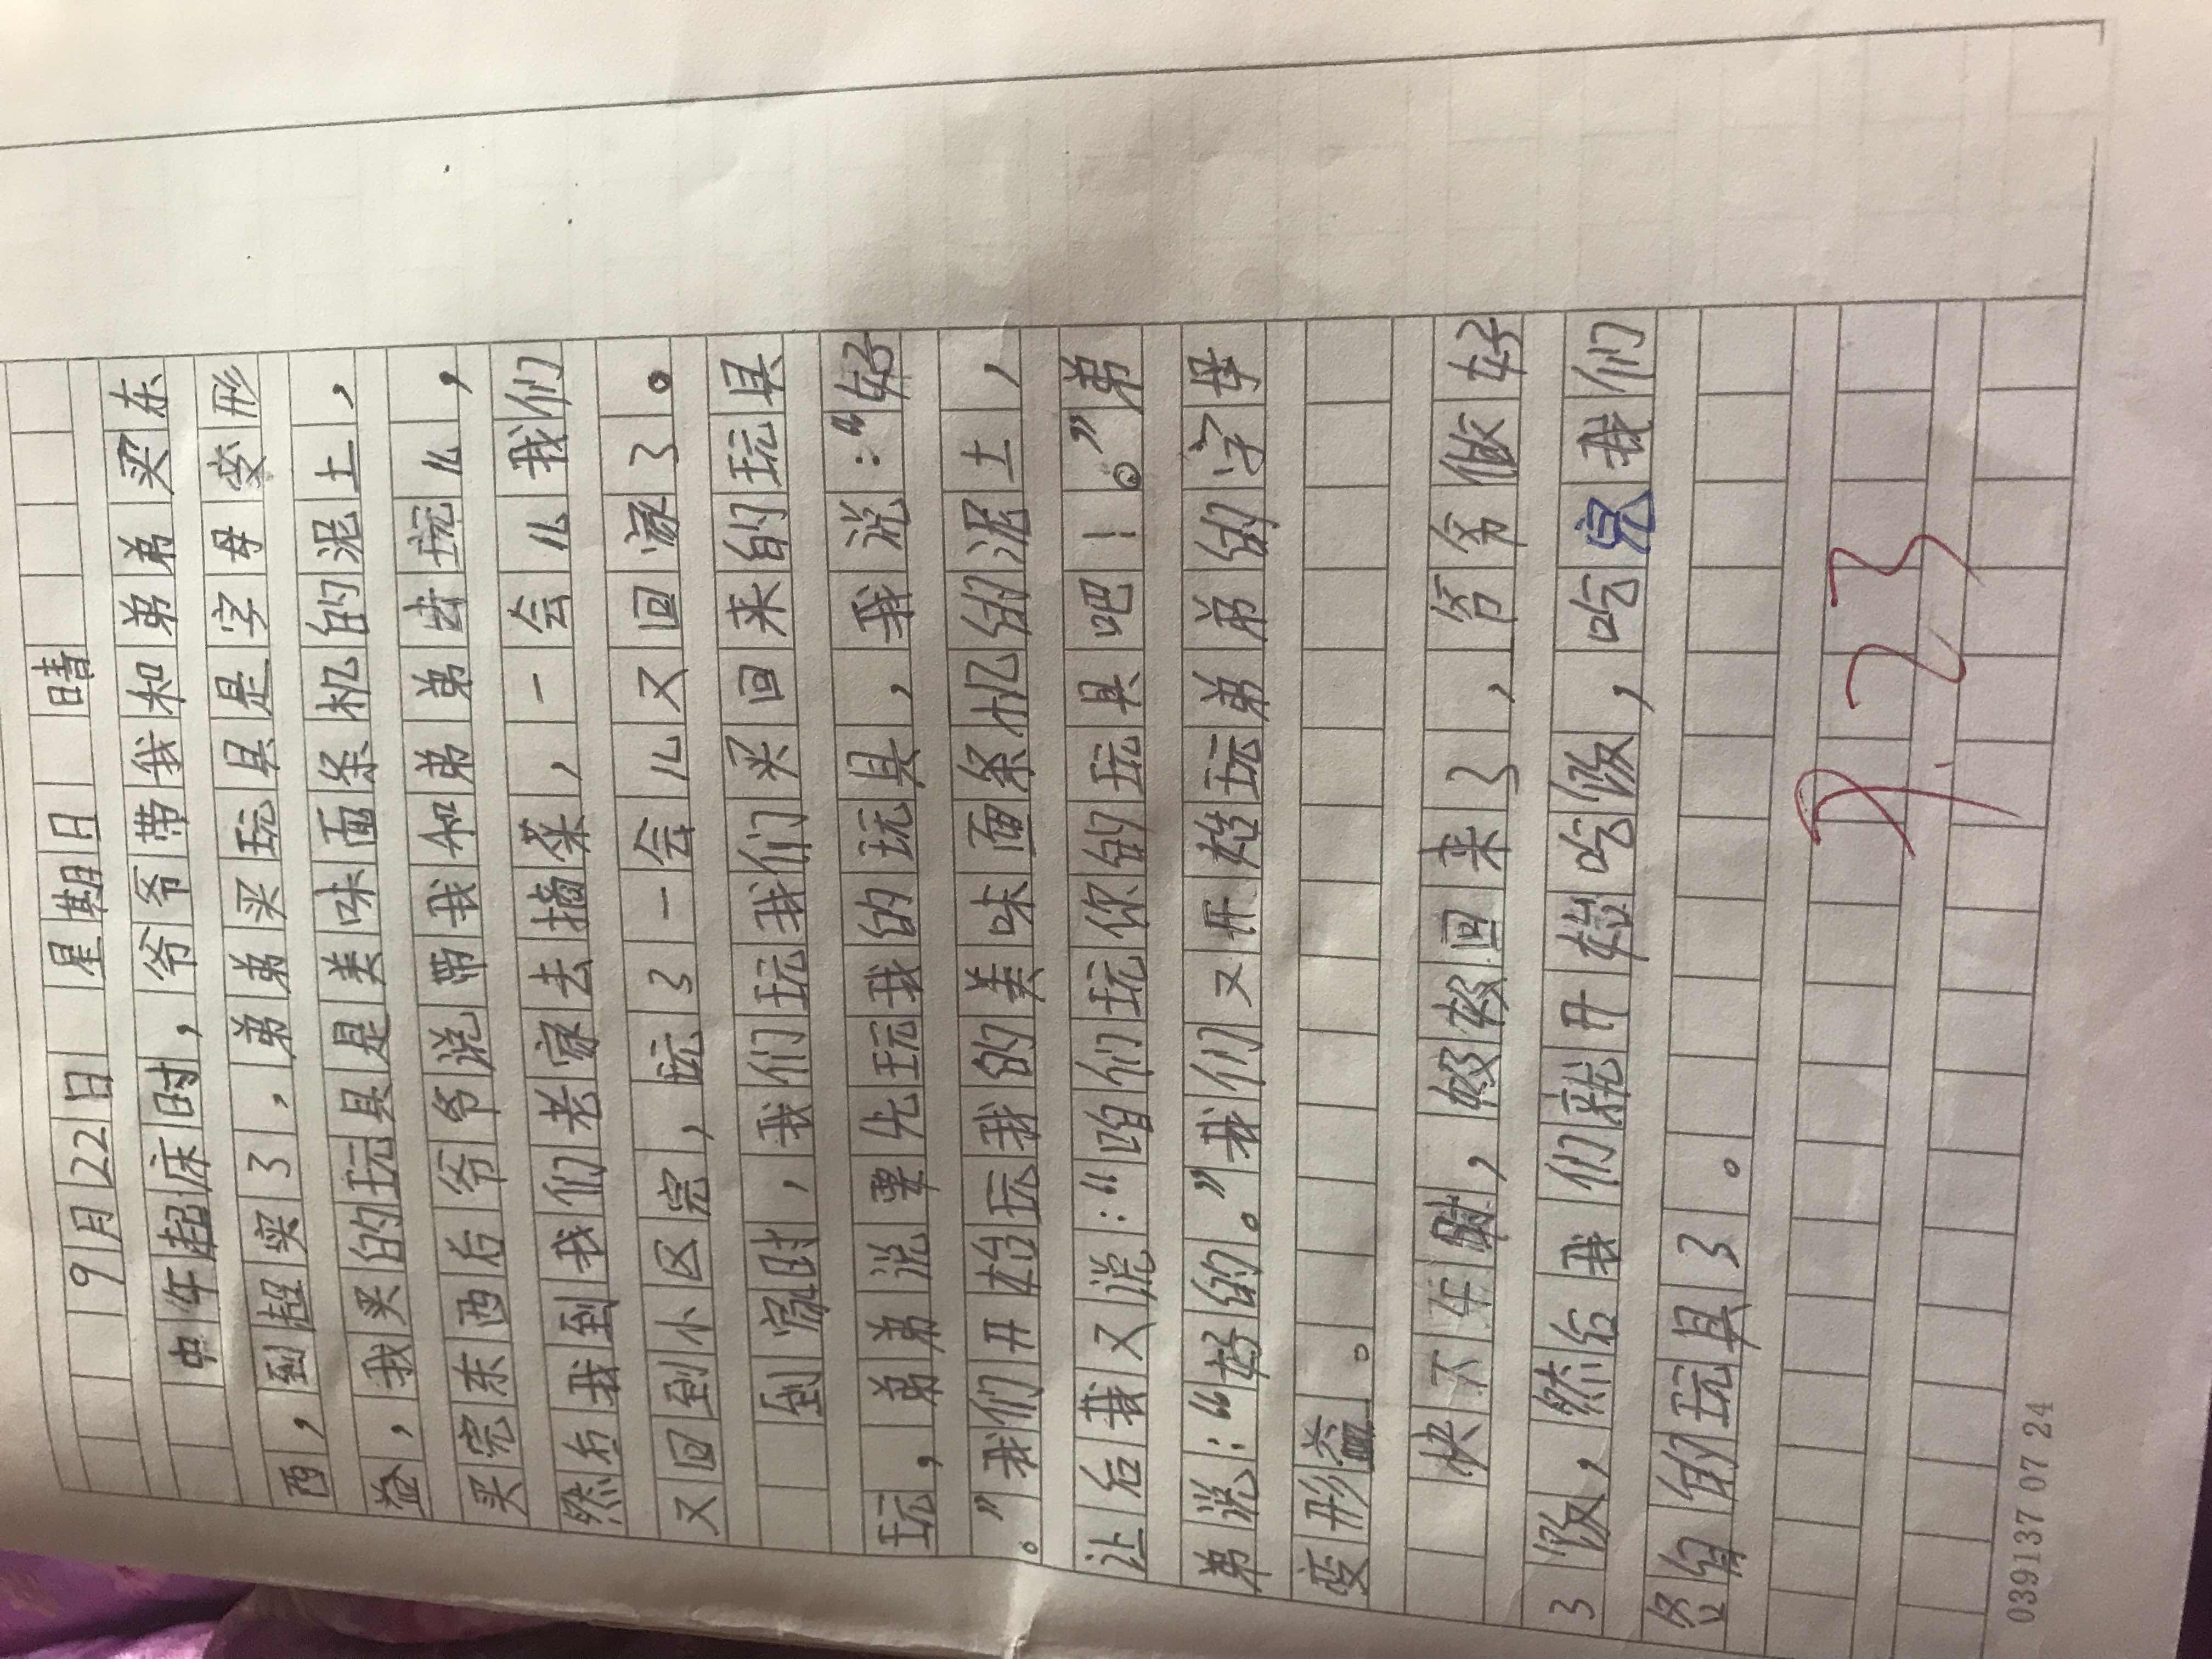 9月22日 星期日 晴
中午起床时，爷爷带我和弟弟买东
西，到超买了，弟弟买玩具是字母变形
益，我买的玩具是美味面条机的泥土，
买完东西后爷爷说带我和弟弟去玩儿，
然后我到我们老家去摘菜，一会儿我们
又回到小区完，玩了一会儿又回家了。
到家时，我们玩我们买回来的玩具
玩，弟弟说要先玩我的玩具，我说：“好
。”我们开始玩我的美味面条机的泥土，
让后我又说：“咱们玩你的玩具吧！。”弟
弟说：“好的。”我们又开始玩弟弟的字母
变形益。
快下午时，爷爷做好
了饭，然后我们就开始吃饭，吃完我们
各自的玩具了。
9.23
039137 07 24